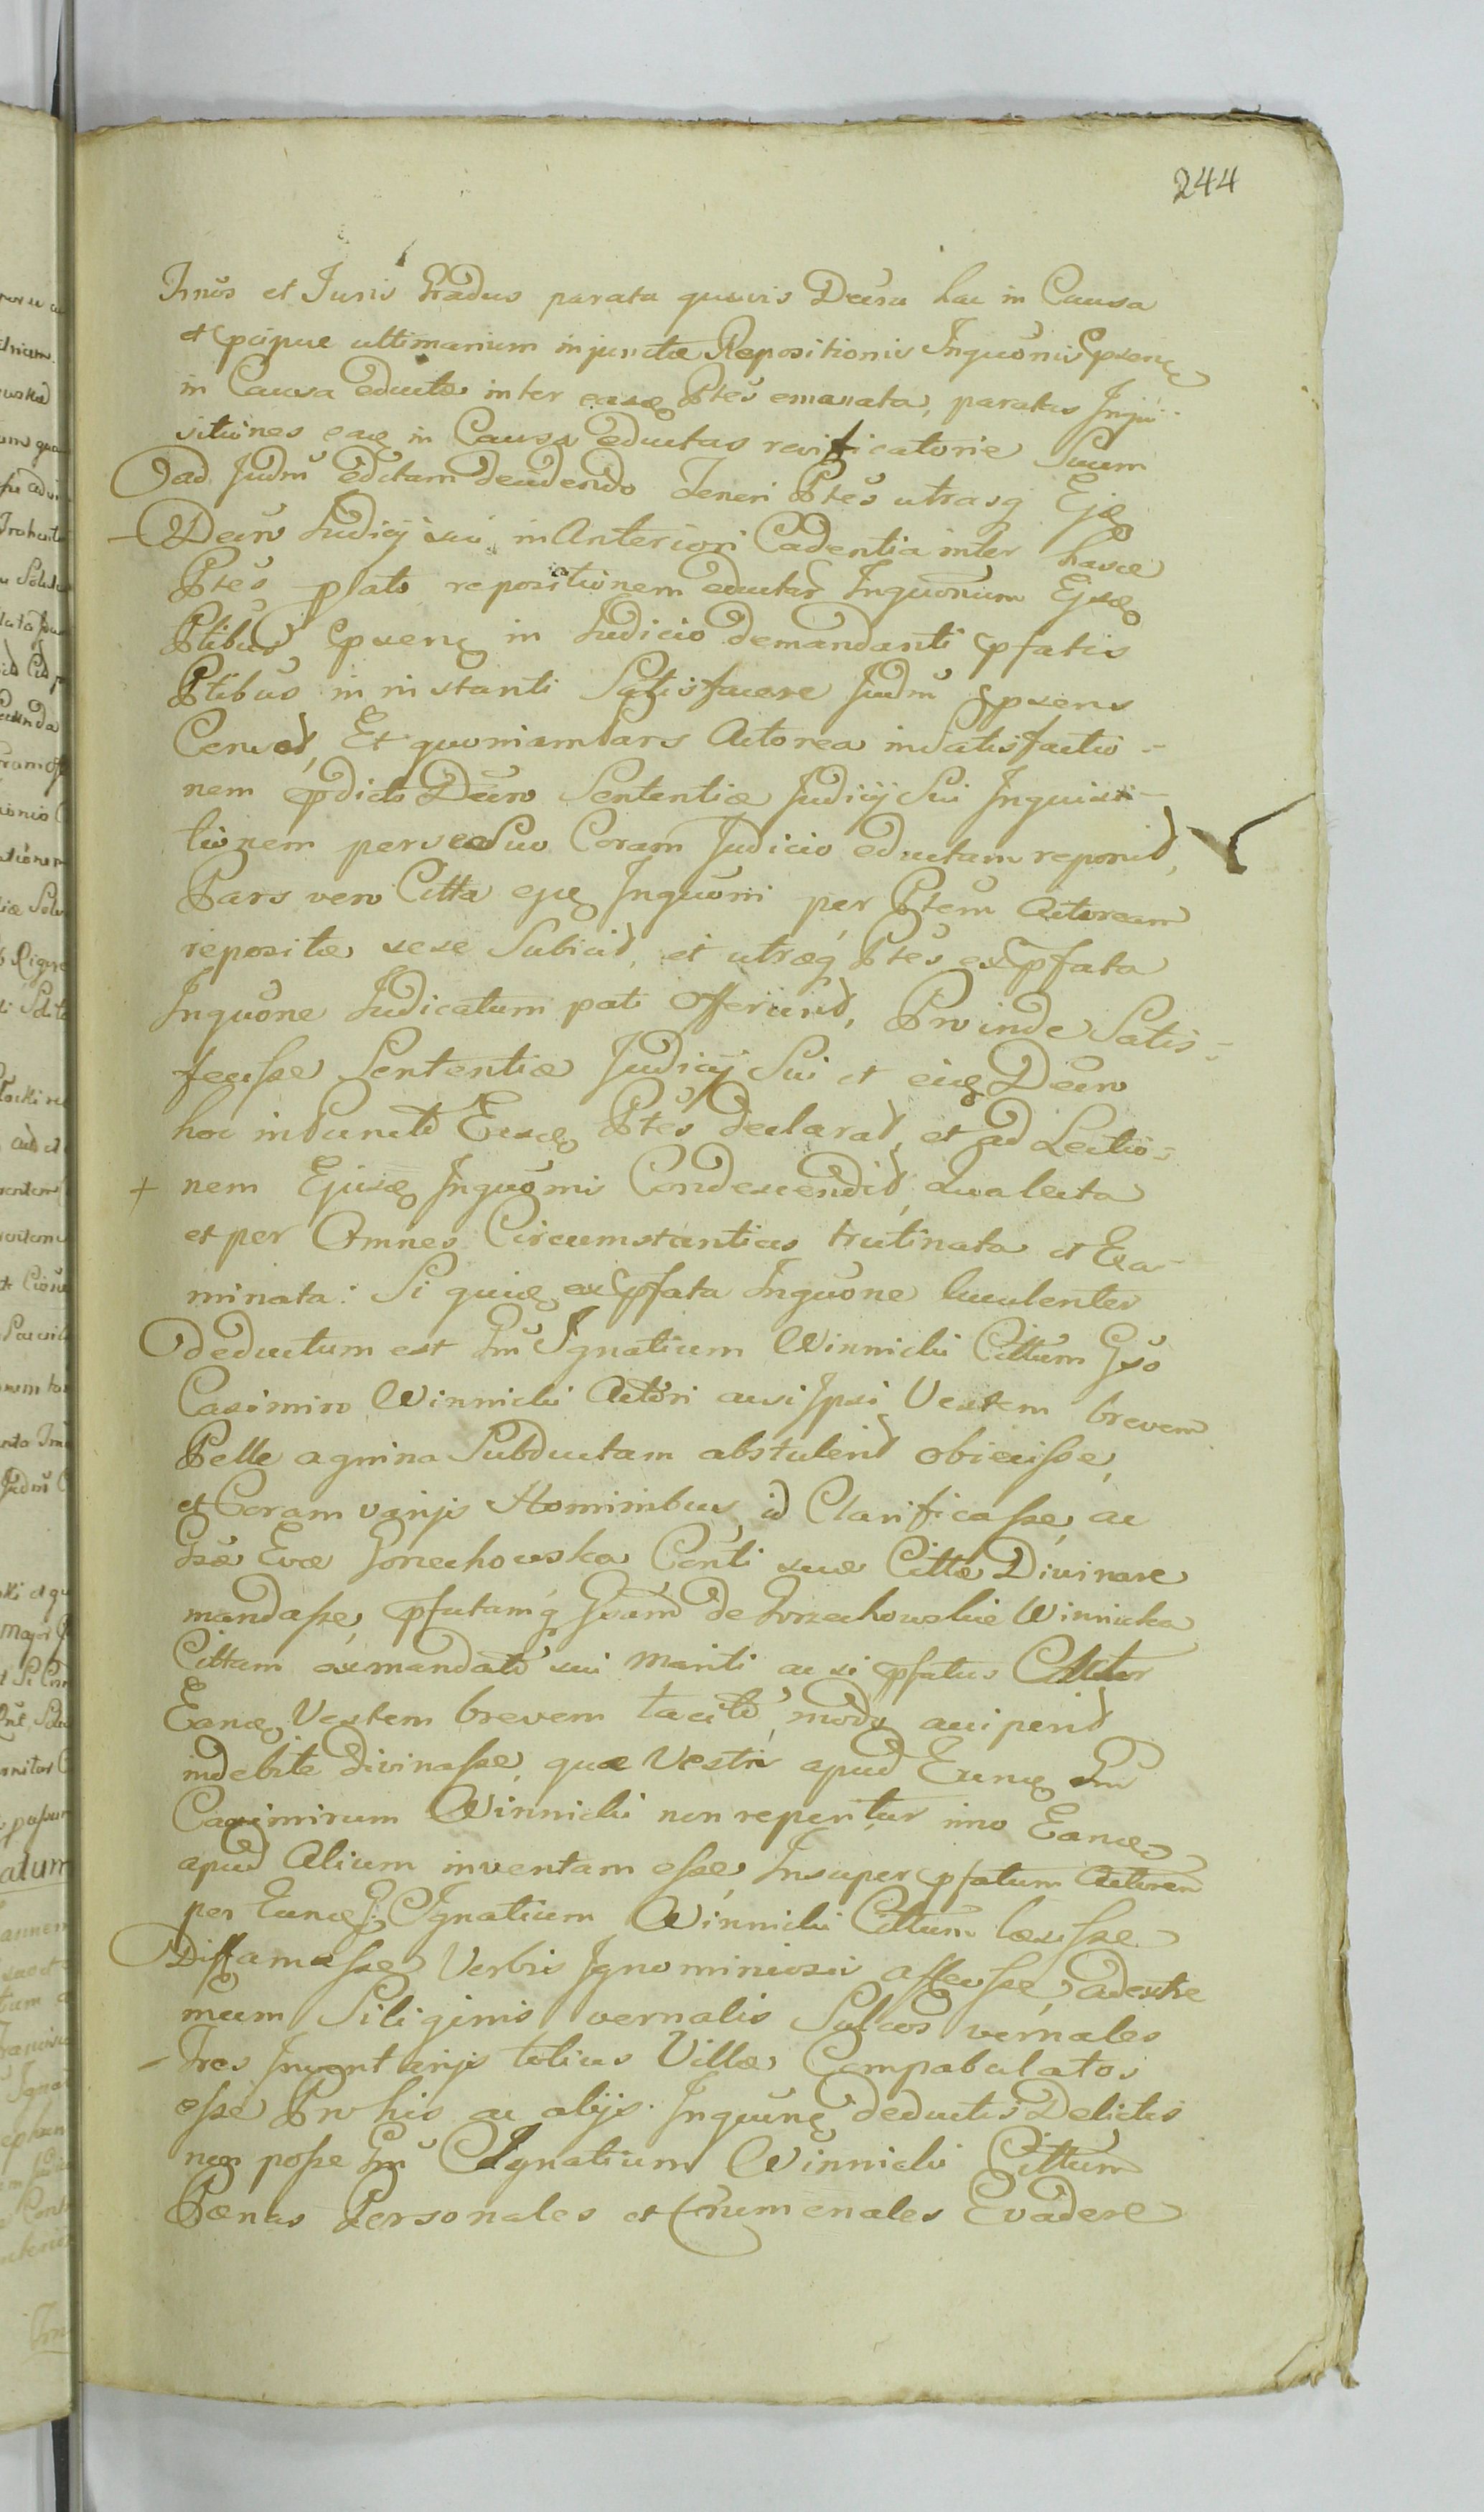 244
Trnōs et Juris Gradus parata quovis Decreu hac in Causa
et pcipue ultimarium injunctæ Repositionis Inquōnis pxenq
in Causa eductæ inter easq Ptēs emanata, paratas Inqui-
sitiones eaq in Causa eductas revificatorie Suum
ad Judm̄ edictam deudendo teneri Ptēs utrasq Ejq
Decro Judicij sui in Anteriori Cadentia inter hasce
Ptēs plato repositionem eductar Inquōnum Ejusq
Ptibūs pxenq in Judicio demandanti pfatis
Ptibūs in instanti Satisfacere Judm̄ pxens
Censet, Et quoniam Pars Actorea in Satisfactio-
nem pdicto Decro Sententiæ Judicij Sui Inquisi-
tionem per se Suo Coram Judicio eductam reponit,
Pars vero Citta ejq Inquōni per Ptēm Actoream
repositæ sese Subicit, et utræq Ptēs ex pfata
Inquōne Judicatum pati offerunt, Proinde Satis-
fecisse Sententiæ Judicij Sui et eiq Decro
hoc in Puncto Easq Ptēs declarat, et ad Lectio-
nem Ejusq Inquōnis Condescendit, Qua lecta
et per Omnes Circumstantias trutinata et Exa-
minata: Si quiq ex pfata Inquōne luculenter
deductum est Gm̄ Ignatium Winnicki Cittum Gso
Casimiro Winnicki Actori acsi Ipsi Vestem brevem
Pelle agnina Subductam abstulerit obiecisse,
et Coram varijs Hominibus id Clarificasse, ac
Gsæ Evæ Gorzechowska Conti suæ Cittæ Divinare
mandasse, pfatamq Gsam de Gorzechowskie Winnicka
Cittam ex mandato sui Mariti ac si pfatus Actor
Eanq Vestem brevem tacito modo acciperit
indebite divinasse, quæ Vestis apud Eunq Gm̄
Casimirum Winnicki non reperitur imo Eanq
apud Alium inventam esse, Insuper pfatum Actorem
per Eunq G: Ignatium Winnicki Cittum læsisse
Diffamasse Verbis Ignominiosis affecisse, ad extre
mum Siliginis vernalis Sulcos vernales
Tres Invent arijs totius Villæ Compabulatos
esse Pro his ac alijs Inquōnq deductis Delictis
non posse Gm̄ Ignatium Winnicki Cittum
Pænas Personales et Crumenales Evadere